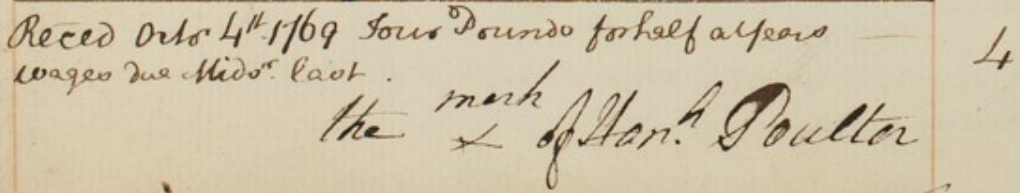 Reced Octr 4th 1769 Four Pounds for half a Years 4
wages due Midsr. last.
the mark
x of Hanh. Poulter